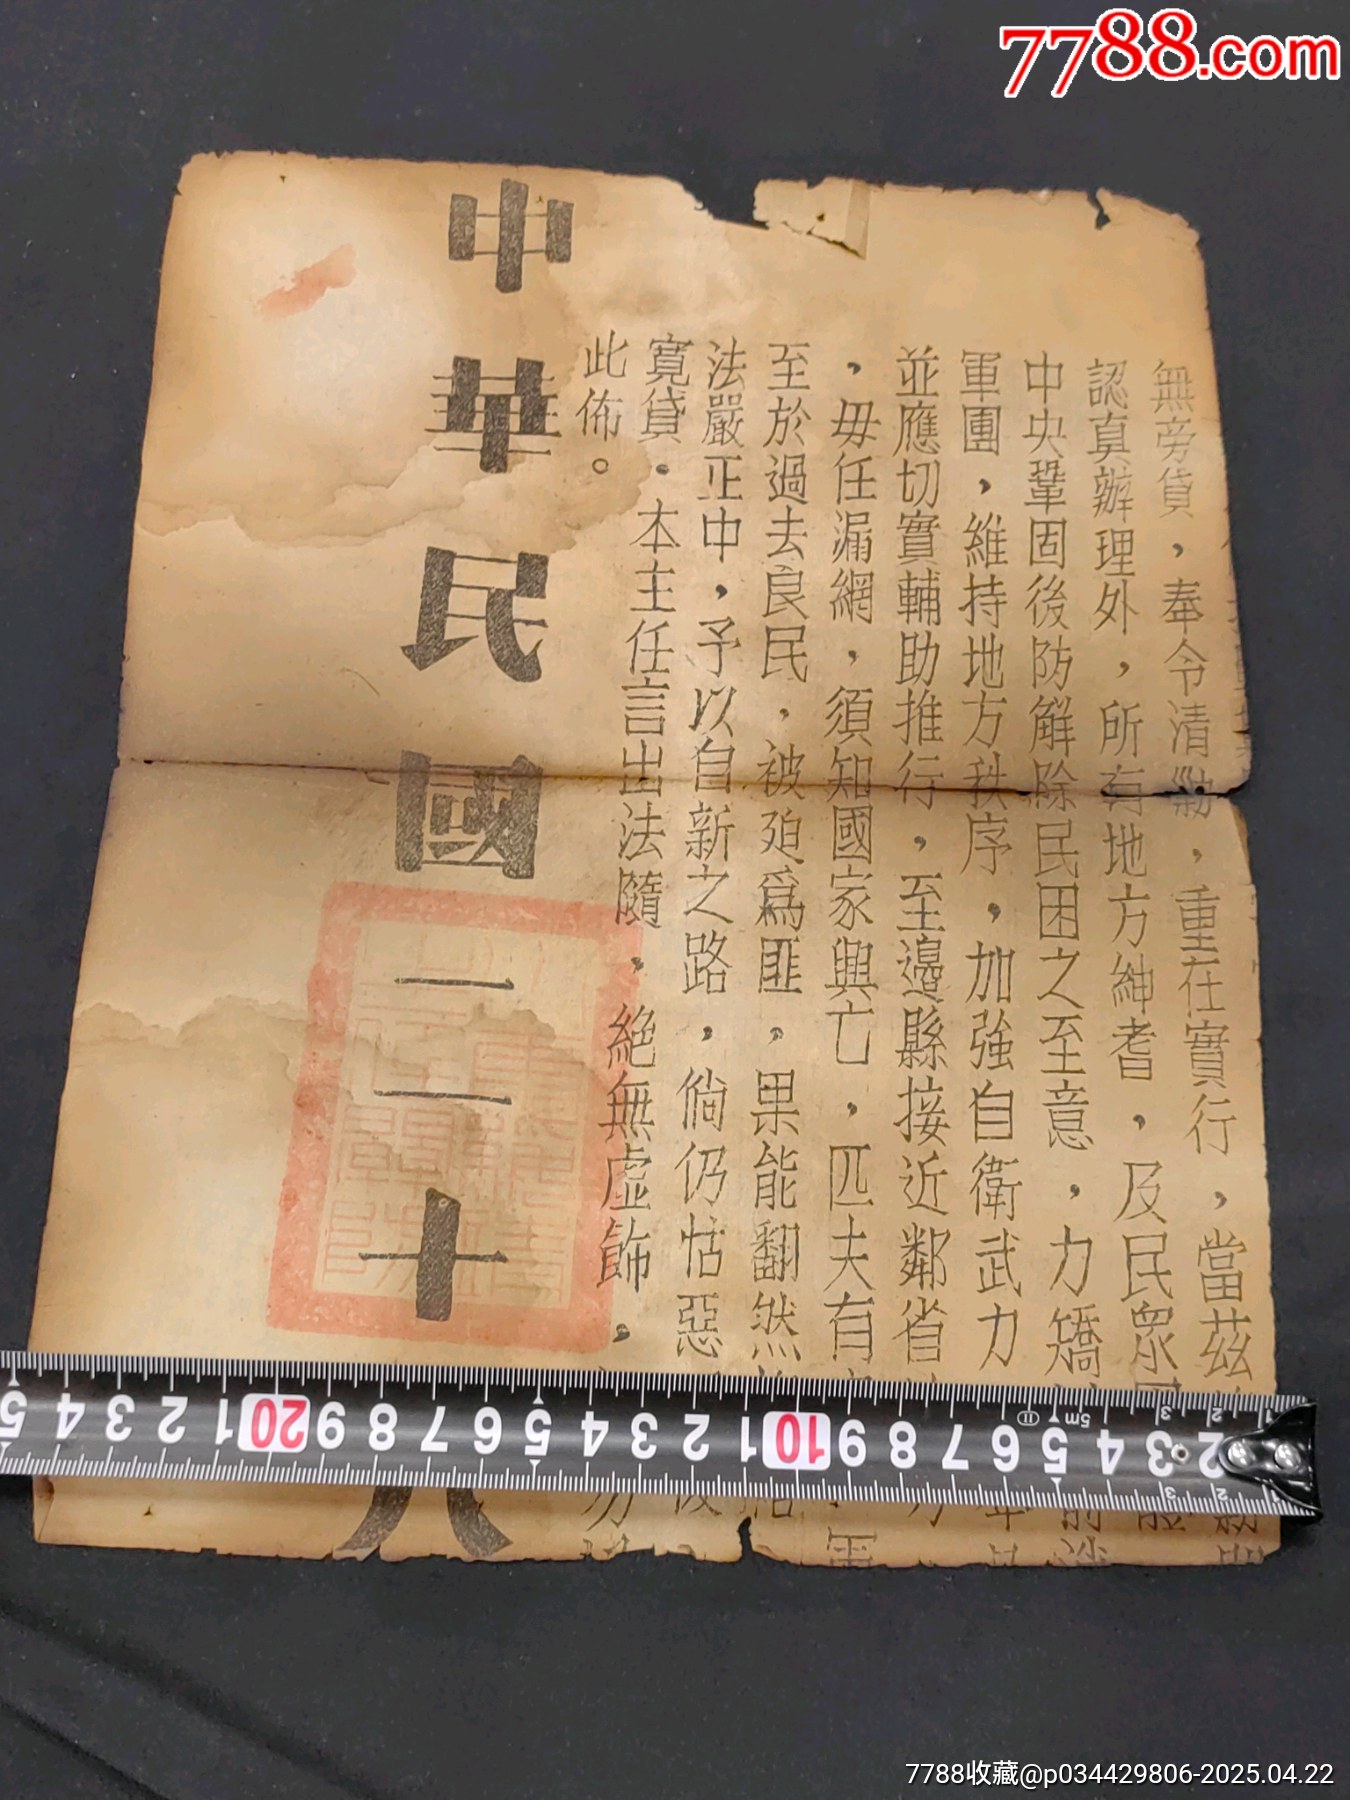 7788.com
無旁貸，奉令清勦，重在實行，當茲
認真辦理外，所有地方紳耆，及民眾
中央鞏固後防解除民困之至意，力矯
軍團，維持地方秩序，加強自衛武力
並應切實輔助推行，至邊縣接近鄰省
，毋任漏網，須知國家興亡，匹夫有
至於過去良民，被廹爲匪，果能翻然
法嚴正中，予以自新之路，倘仍怙惡
寬貸．本主任言出法隨，絕無虛飾，
此佈。
中華民國二十八
5 4 3 2 1 20 9 8 7 6 5 4 3 2 1 10 9 8 7 6 5 4 3 2
5m
7788收藏@p034429806-2025.04.22